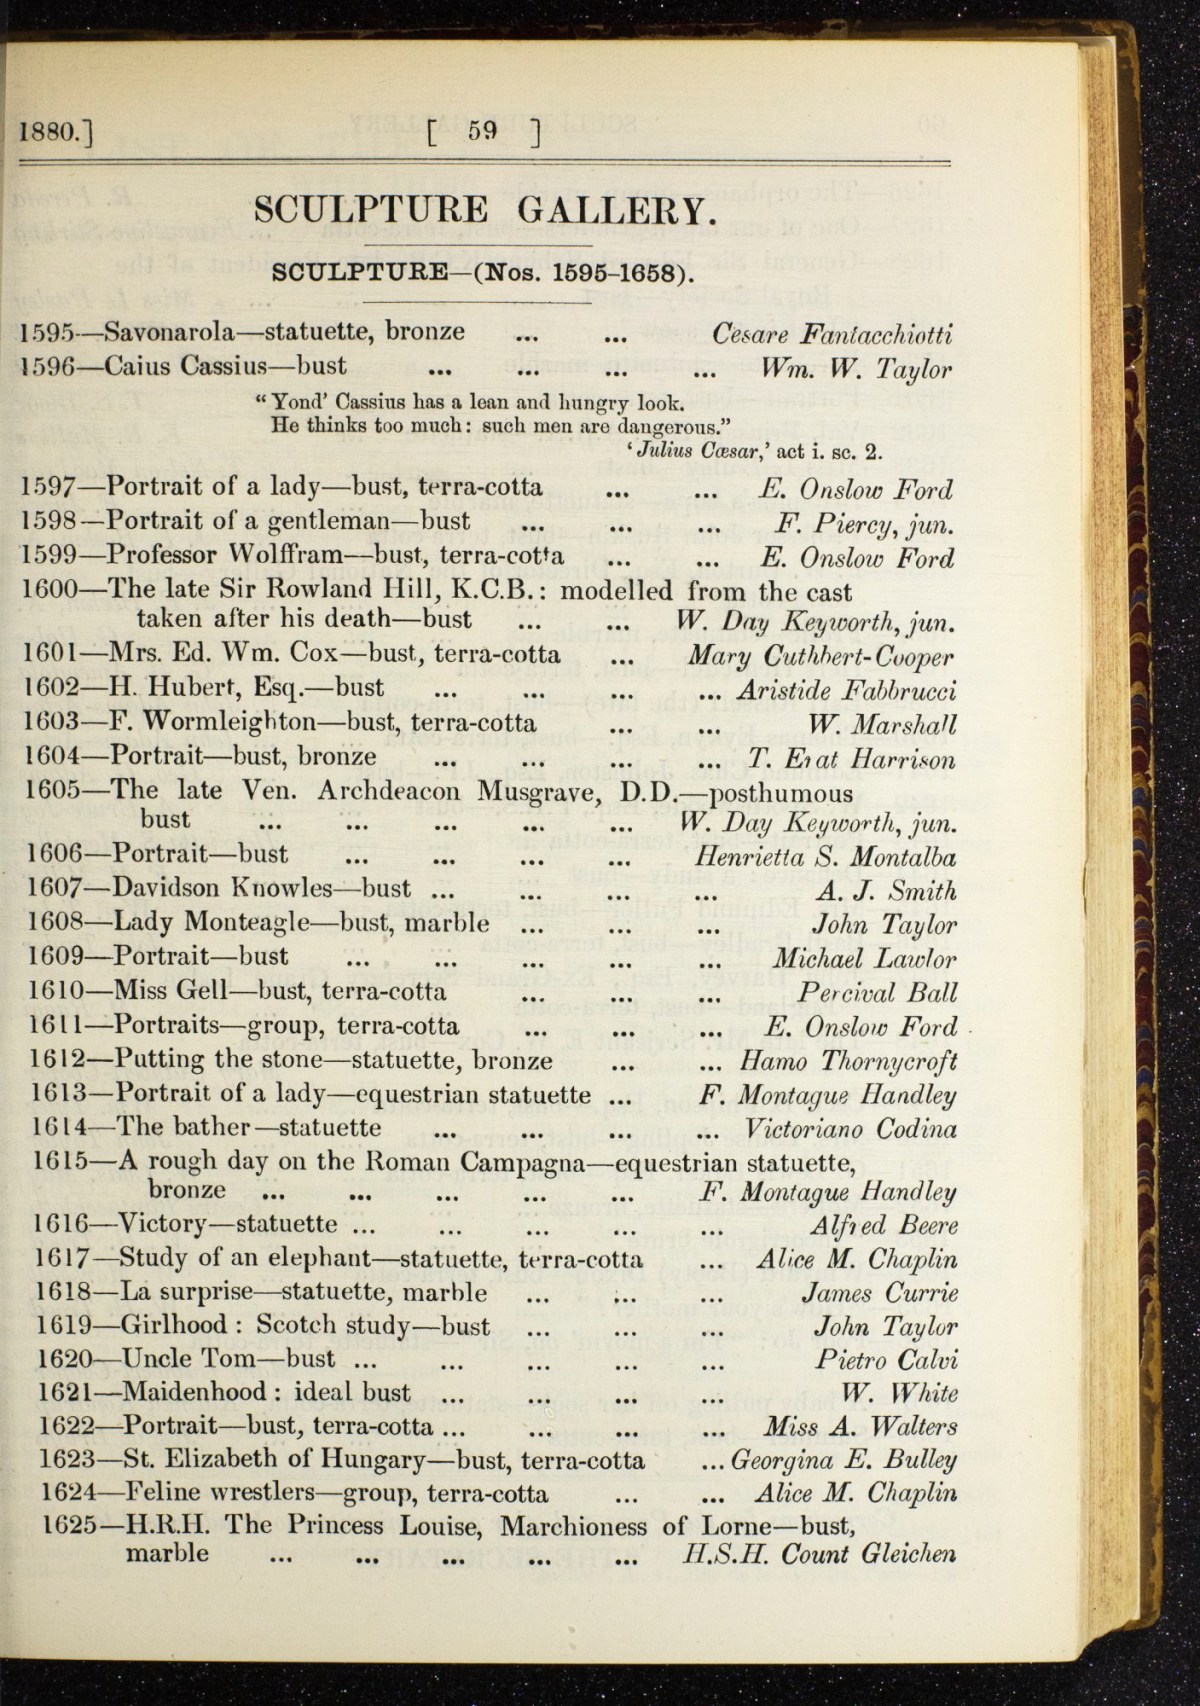 1880.] [ 59 ]
SCULPTURE GALLERY.
SCULPTURE—(Nos. 1595-1658).
1595—Savonarola—statuette, bronze ... ... Cesare Fantacchiotti
1596—Caius Cassius—bust ... ... ... ... Wm. W. Taylor
“ Yond’ Cassius has a lean and hungry look.
He thinks too much: such men are dangerous.”
‘ Julius Cæsar,’ act i. sc. 2.
1597—Portrait of a lady—bust, terra-cotta ... ... E. Onslow Ford
1598—Portrait of a gentleman—bust ... ... ... F. Piercy, jun.
1599—Professor Wolffram—bust, terra-cotta ... ... E. Onslow Ford
1600—The late Sir Rowland Hill, K.C.B.: modelled from the cast
taken after his death—bust ... ... W. Day Keyworth, jun.
1601—Mrs. Ed. Wm. Cox—bust, terra-cotta ... Mary Cuthbert-Cooper
1602—H. Hubert, Esq.—bust ... ... ... ... Aristide Fabbrucci
1603—F. Wormleighton—bust, terra-cotta ... ... W. Marshall
1604—Portrait—bust, bronze ... ... ... ... T. Erat Harrison
1605—The late Ven. Archdeacon Musgrave, D.D.—posthumous
bust ... ... ... ... ... W. Day Keyworth, jun.
1606—Portrait—bust ... ... ... ... Henrietta S. Montalba
1607—Davidson Knowles—bust ... ... ... ... A. J. Smith
1608—Lady Monteagle—bust, marble ... ... ... John Taylor
1609—Portrait—bust ... ... ... ... ... Michael Lawlor
1610—Miss Gell—bust, terra-cotta ... ... ... Percival Ball
1611—Portraits—group, terra-cotta ... ... ... E. Onslow Ford
1612—Putting the stone—statuette, bronze ... ... Hamo Thornycroft
1613—Portrait of a lady—equestrian statuette ... F. Montague Handley
1614—The bather—statuette ... ... ... ... Victoriano Codina
1615—A rough day on the Roman Campagna—equestrian statuette,
bronze ... ... ... ... ... F. Montague Handley
1616—Victory—statuette ... ... ... ... ... Alfred Beere
1617—Study of an elephant—statuette, terra-cotta ... Alice M. Chaplin
1618—La surprise—statuette, marble ... ... ... James Currie
1619—Girlhood : Scotch study—bust ... ... ... John Taylor
1620—Uncle Tom—bust ... ... ... ... ... Pietro Calvi
1621—Maidenhood : ideal bust ... ... ... ... W. White
1622—Portrait—bust, terra-cotta ... ... ... ... Miss A. Walters
1623—St. Elizabeth of Hungary—bust, terra-cotta ... Georgina E. Bulley
1624—Feline wrestlers—group, terra-cotta ... ... Alice M. Chaplin
1625—H.R.H. The Princess Louise, Marchioness of Lorne—bust,
marble ... ... ... ... ... H.S.H. Count Gleichen